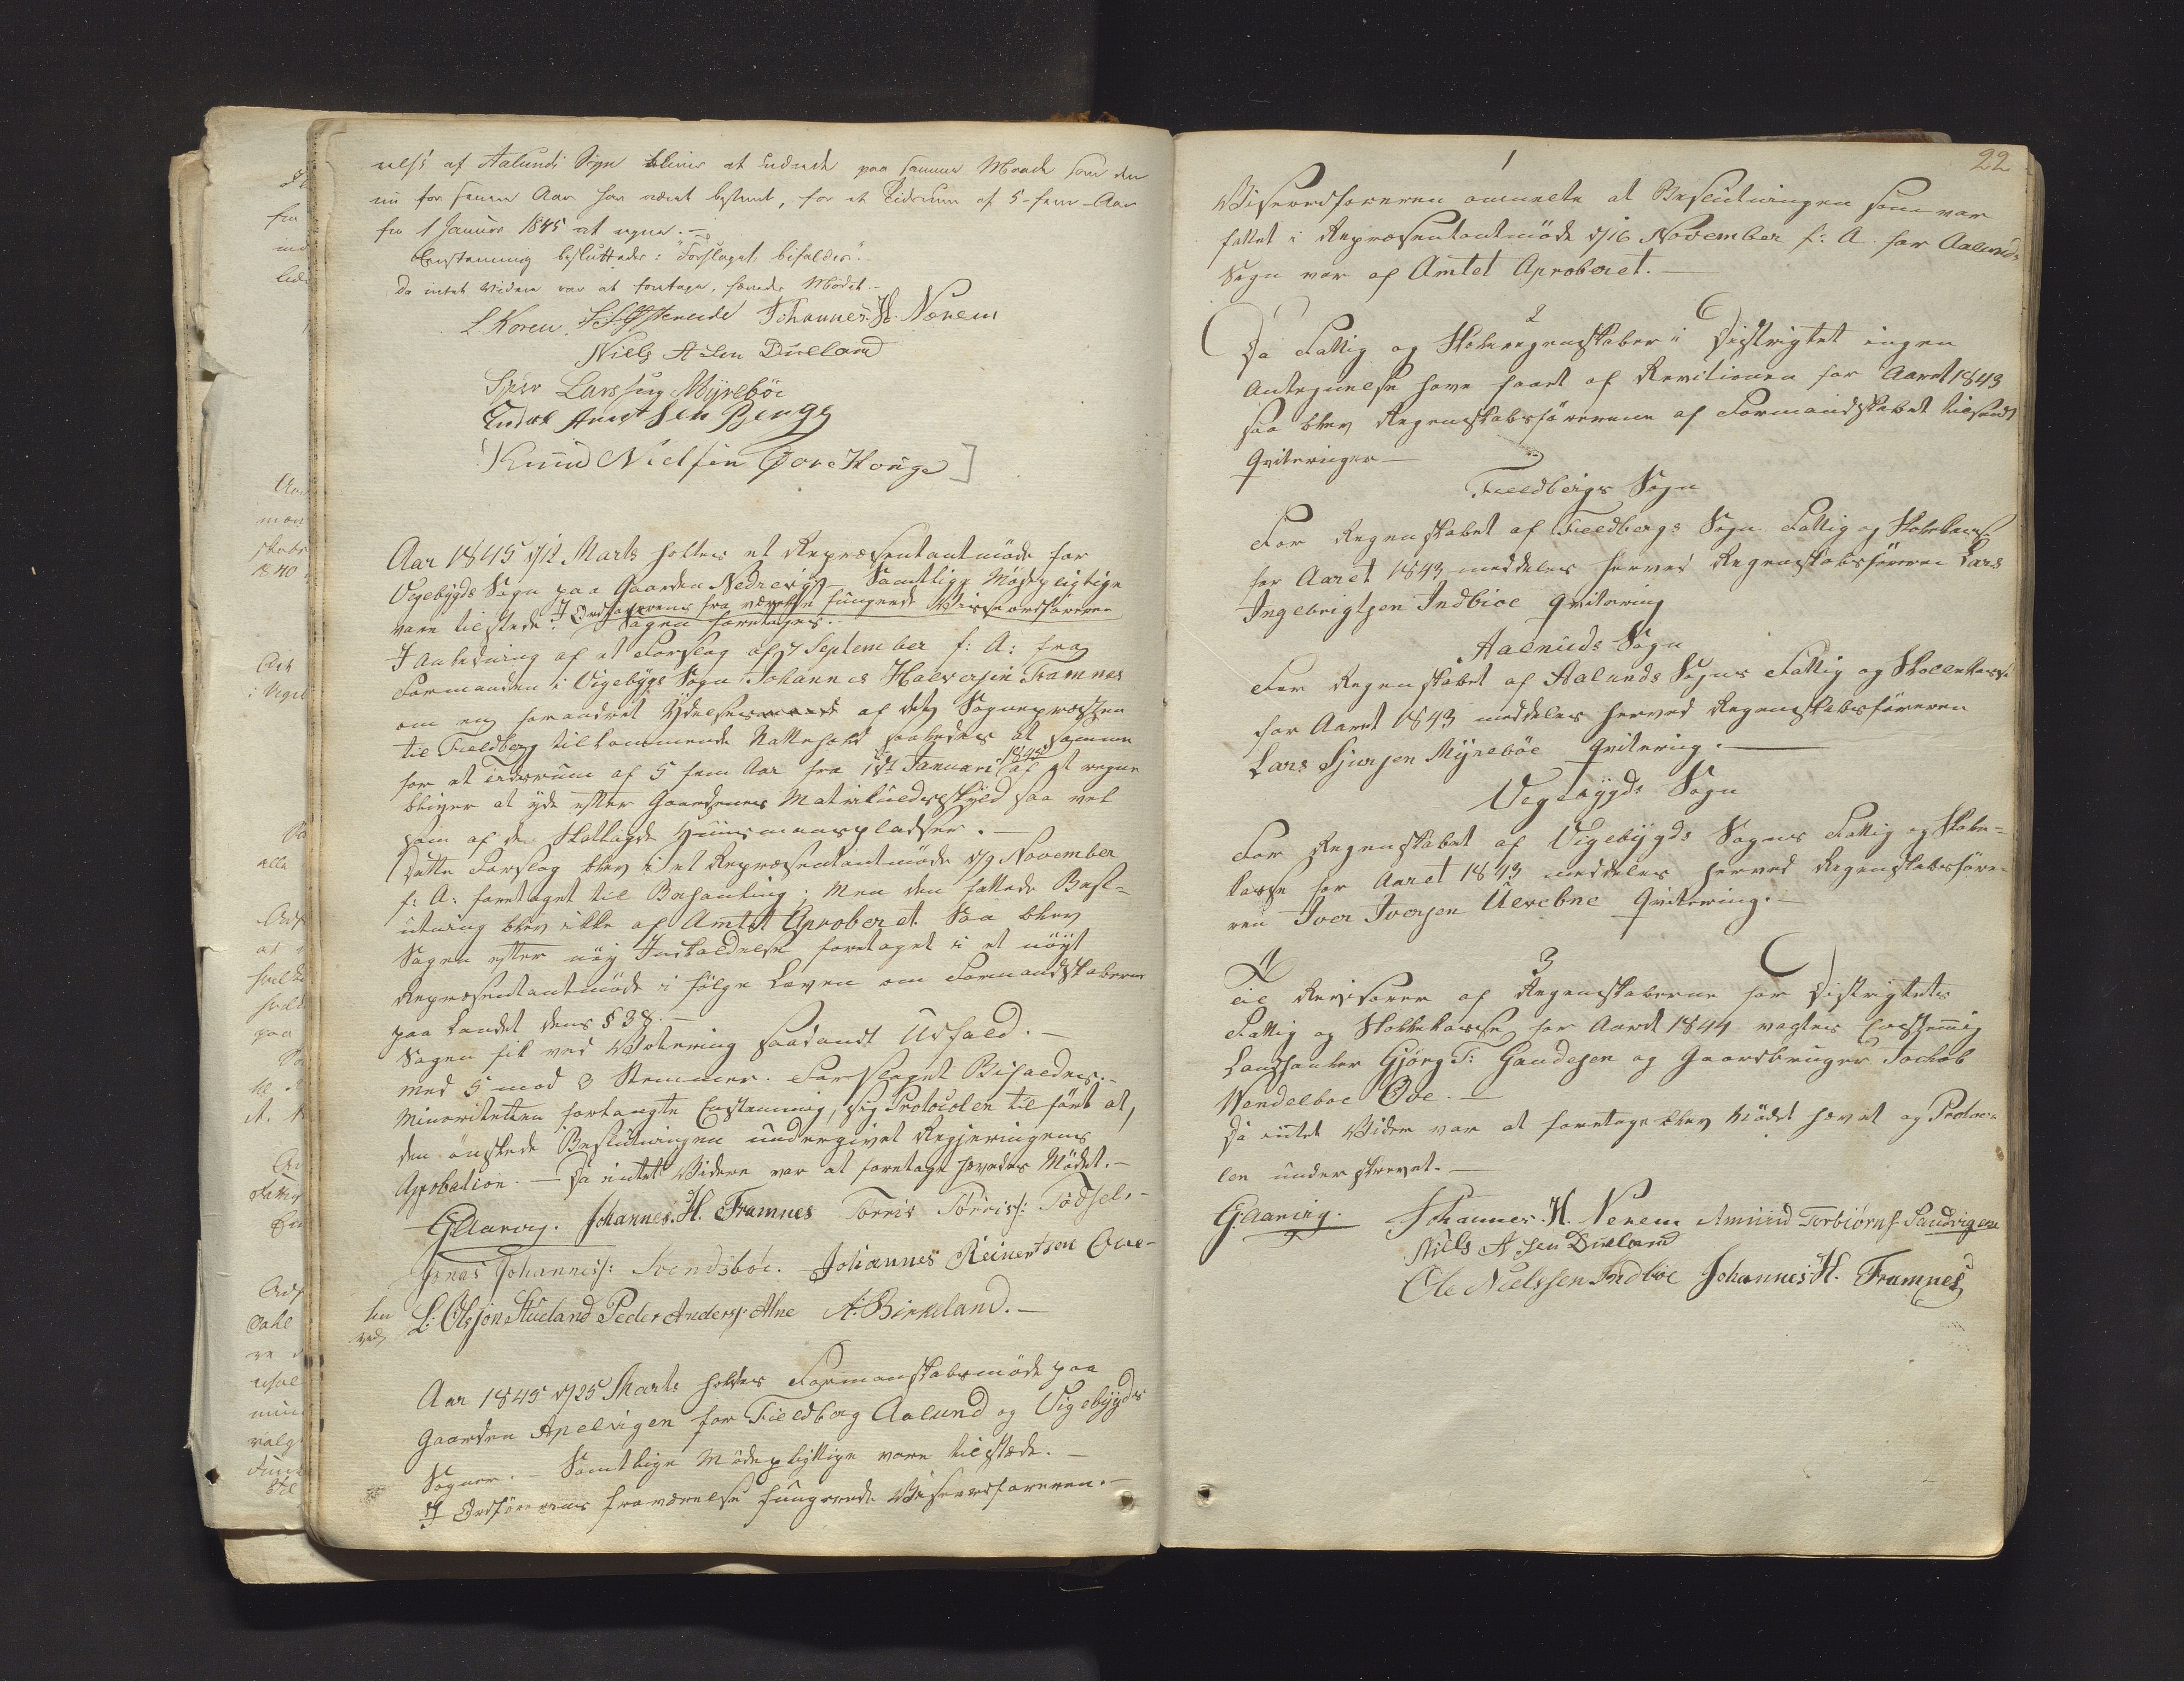 af Aalunds Sogn bliver at udrede paa samme Maade som den
nu for Aar har været bestemt, for et Tidsrum af 5-fem-Aar
fra 1 Januar 1845 at regne.-
Eenstemmig besluttedes: "Forslaget bifaldes".
Da intet Videre var at foretage, hævedes Mødet.-
L. Koren. Johannes. H. Nerem
Niels A sen Dueland
Sjur Larssen Myrebøe
Endre Amotsen Berge
Knud Nielsen Øvre Houge
Aar 1845 d/12 Marts holtes et Repræsentantmøde for
Vigebygds Sogn paa Gaarden Nedrevig - Samtlige Mødepligtige
vare tilstede. I Ordførerens fra værelse fungerede Viseordføreren
Sagen foretages.
I Anledning af et Forslag af 7 September f: A: fra
Formanden i Vigebygds Sogn Johannes Halversen Framnes
om en forandret Ydelsesmaade af det Sognepræsten
til Fieldberg tilkommende Nattehold saaledes at samme
for et tidsrum af 5 fem Aar fra 1ste Januari 1845 af at regne
bliver at yde efter Gaardenes Matrikulsskyld saa vel
som af de Skatlagde Huusmanspladser.-
Dette Forslag blev i et Repræsentantmøde d/9 November
f: A: foretaget til Behanling; Men den fattede Besl-
utning blev ikke af Amtet Aproberet. Saa blev
Sagen efter nøy Indkaldelse foretaget i et nøyt
Repræsentantmøde i følge Loven om Formandskaberne
paa Landet dens § 38.-
Sagen fik ved Votering saadant Udfald.-
med 5 mod 3 Stemmer. Forslaget Bifaldes.-
Minoriteten forlangte Enstemmig, sig Protocolen til ført at,
den ønskede Beslutningen undergivet Regjeringens
Approbation. - Da intet Videre var at foretage hævedes Mødet.-
G. Aarvig. Johannes. H. Framnes Torris Torriss: Tødsel.-
Jonas Johanness: Svendsbøe. Johannes Reinertsen Ove-
L: Olsson Stueland Peder Anderss: Alne A: Birkeland.-
Aar 1845 d/25 Marts holtes Formanskabsmøde paa
Gaarden Apelvigen for Fieldberg Aalund og Vigebygds
Sogner. - Samtlige Mødepligtige vare tilstede.-
I Ordførerens fraværelse fungerede Viseordføreren.-
22
1
Viseordføreren anmelte at Beslutningen som var
fattet i Repræsentantmøde d/16 November f: A. for Aalunds
Sogn var af Amtet Aproberet.-
2
Da Fattig og Skoleregenskaber i Distrigtet ingen
Antegnelse have faaet af Revitionen for Aaret 1843
saa blev Regenskabsførerene af Formandskabet tilsendt
Qviteringer-
Fieldbergs Sogn
For Regenskabet af Fieldbergs Sogn Fattig og Skolekasse
for Aaret 1843 meddeles herved Regenskabsføreren Lars
Ingebrigtsen Indbiøe Qvitering
Aalunds Sogn
For Regenskabet af Aalunds Sogns Fattig og Skolekasse
for Aaret 1843 meddeles herved Regenskabsføreren
Lars Sjursen Myrebøe Qvitering.-
Vigebygds Sogn
For Regenskabet af Vigebygds Sogns Fattig og Skole-
kasse for Aaret 1843 meddeles herved Regenskabsføre-
ren Iver Iversen Ulvebne Qvitering.-
3
Til Revisorer af Regenskaberne for Distrigtets
Fattig og Skolekasse for Aaret 1844 valgtes Enstemig
Landhanler Gjørg F: Gaudesen og Gaardbruger Jachob
Wendelboe Øde.-
Da intet Videre var at foretage blev Mødet hævet og Protoco-
len underskrevet.-
G. Aarvig. Johannes. H. Nerem Amund Torbiørns. Sandvigen
Niels A sen Dueland
Ole Nielssen Indbiøe Johannes H. Framnes